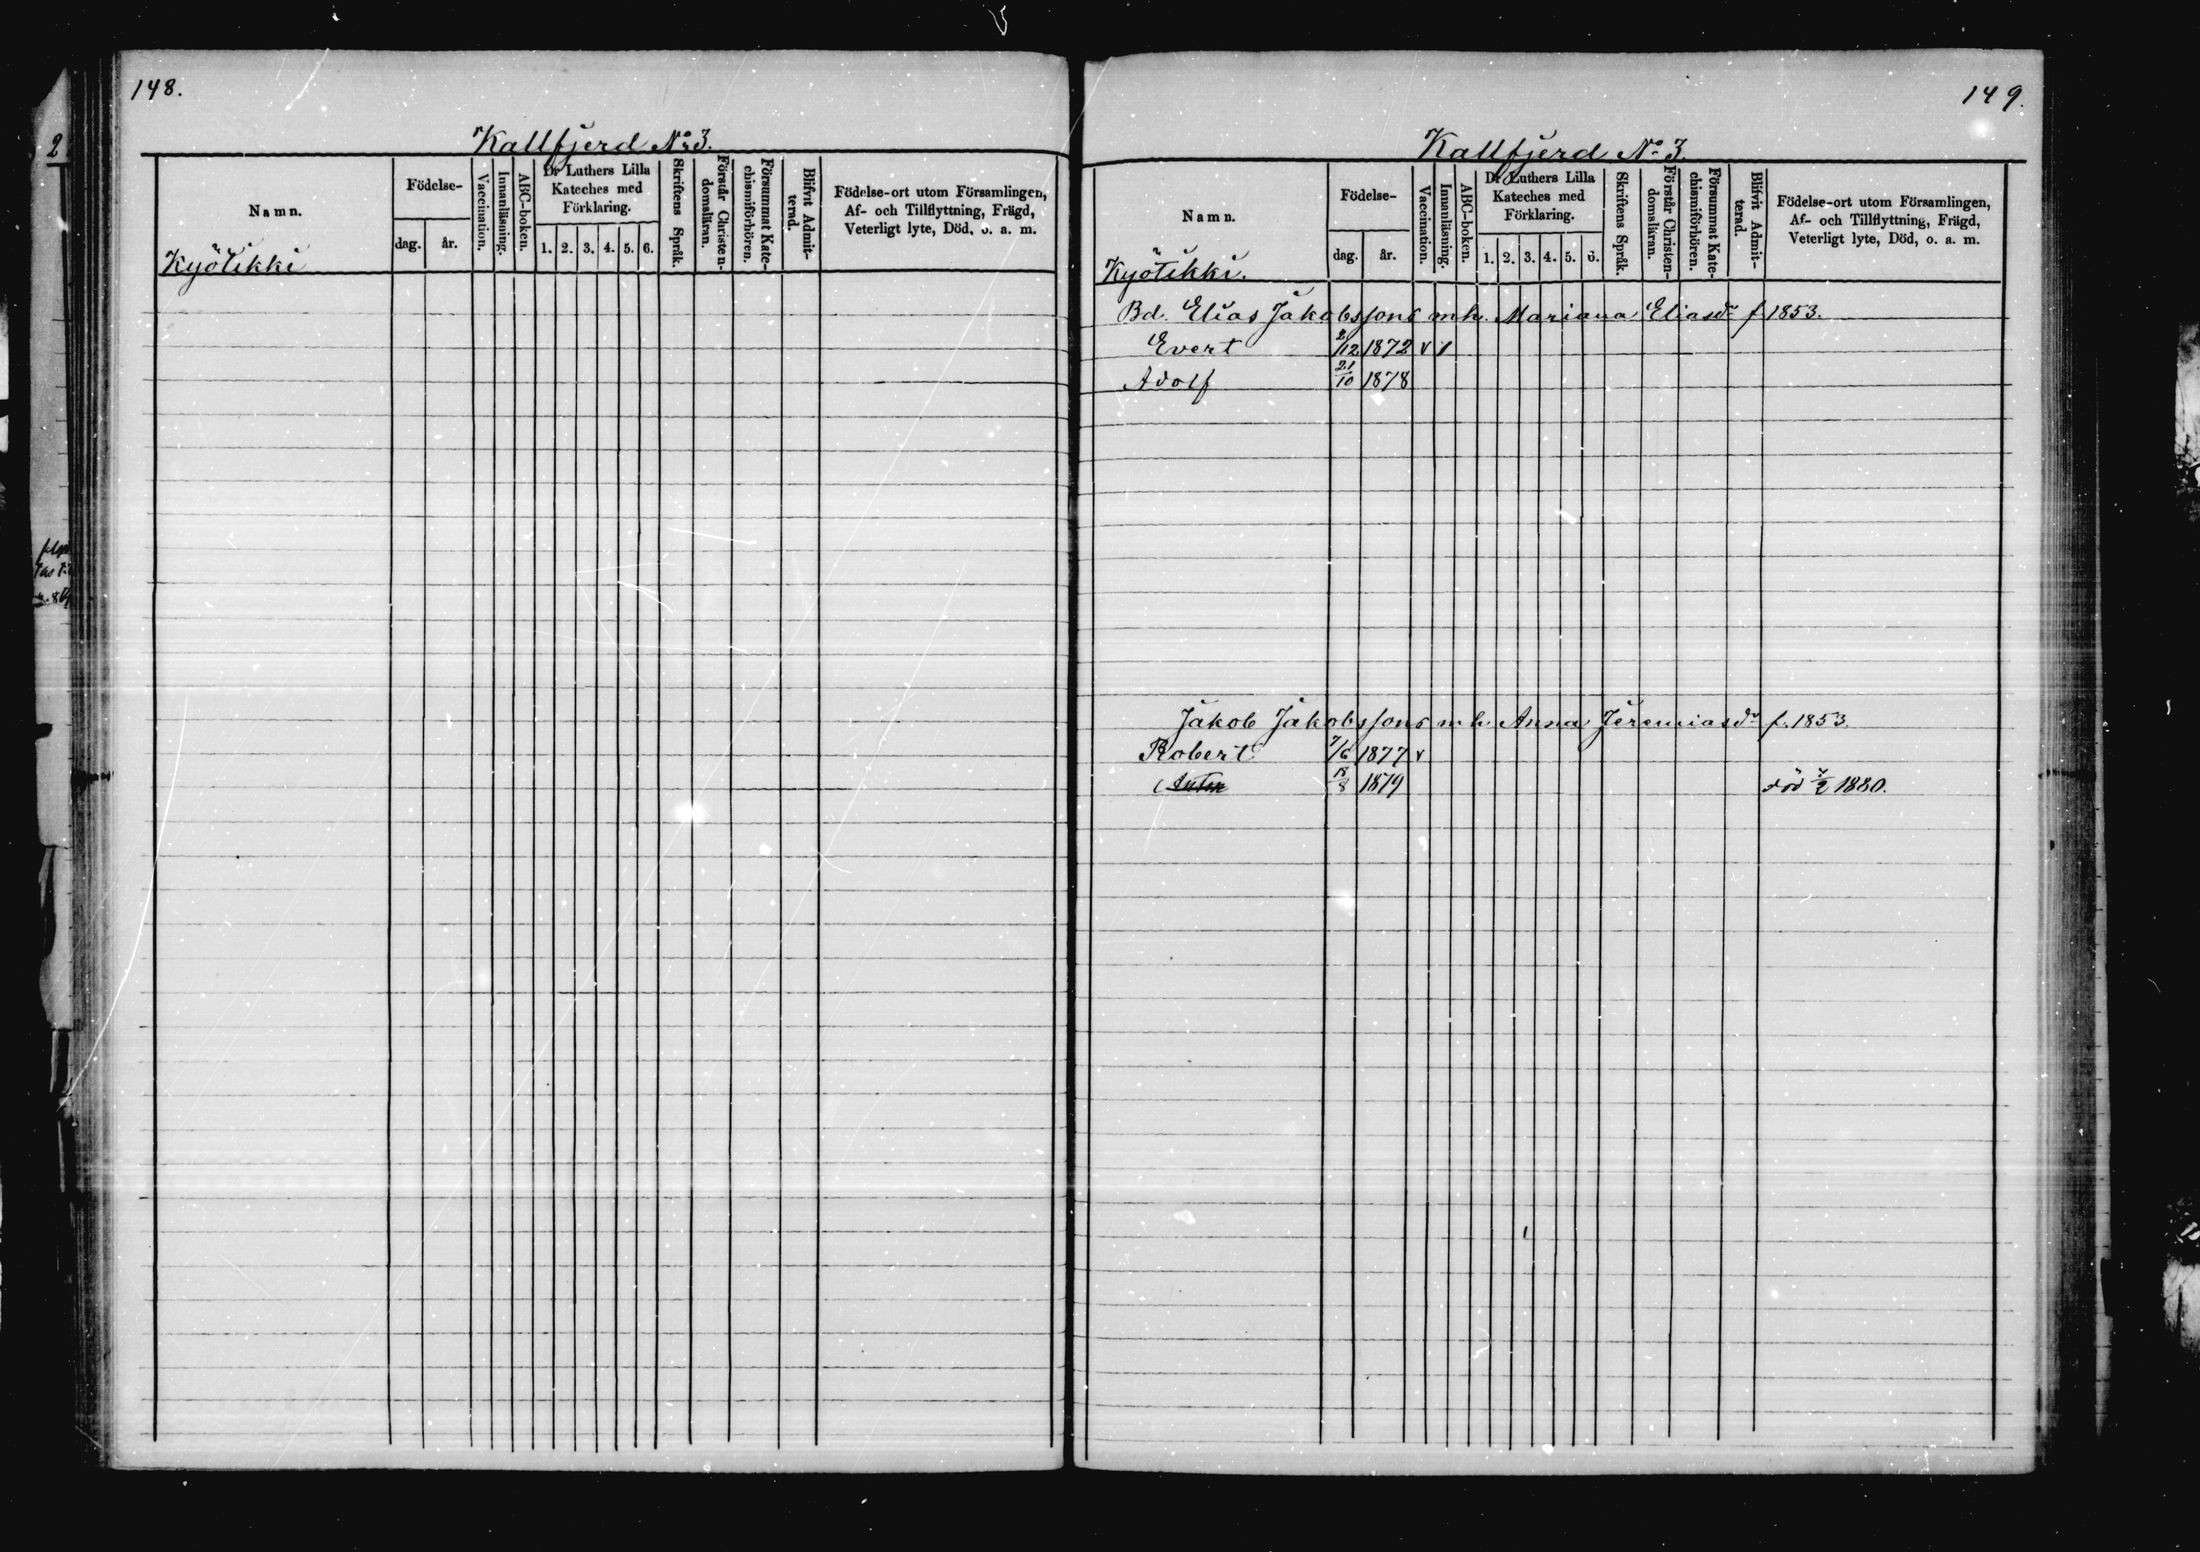 148.
Kallfjerd No 3.
Namn.
Födelse-
dag.
år.
Vaccination.
Innanläsning.
ABC-boken.
Dr Luthers Lilla
Kateches med
Förklaring.
1. 2. 3. 4. 5. 6.
Skriftens Språk.
Förstår Christen-
domsläran.
Försummat Kate-
chismiförhören.
Blifvit Admit-
terad.
Födelse-ort utom Församlingen,
Af- och Tillflyttning, Frägd,
Veterligt lyte, Död, o. a. m.
Kyötikki
149.
Kallfjerd No 3.
Namn.
Födelse-
dag.
år.
Vaccination.
Innanläsning.
ABC-boken.
Dr Luthers Lilla
Kateches med
Förklaring.
1. 2. 3. 4. 5. 6.
Skriftens Språk.
Förstår Christen-
domsläran.
Försummat Kate-
chismiförhören.
Blifvit Admit-
terad.
Födelse-ort utom Församlingen,
Af- och Tillflyttning, Frägd,
Veterligt lyte, Död, o. a. m.
Kyötikki.
Bd. Elias Jakobssons mh. Mariana Eliasdr f 1853.
Evert 2/12 1872 v /
Adolf 21/10 1878
Jakob Jakobssons mh. Anna Jeremiasdr f. 1853.
Robert 7/6 1877 v
Anton 18/8 1879 död 7/2 1880.